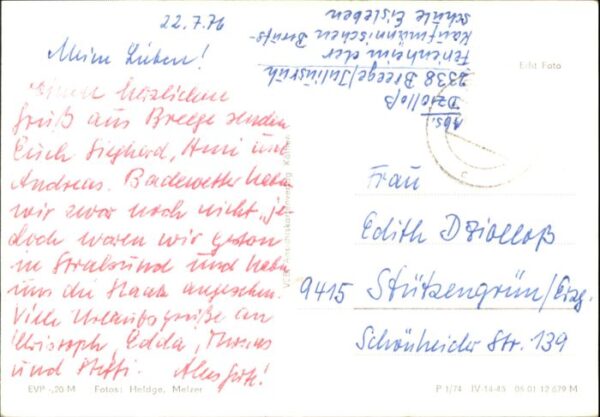 22.7.76
Meine Lieben!
Einen herzlichen
Gruß aus Breege senden
Euch Siegherd, Anni und
Andreas. Badewetter haben
wir zwar noch nicht, je-
doch waren wir gestern
in Stralsund und haben
uns die Stadt angesehen.
Viele Urlaubsgrüße an
Christoph, Edda, Thomas
und Steffi. Alles Gute!
EVP -,20 M Fotos: Heldge, Melzer
Abs.:
Dziolloß
2338 Breege/Juliusruh
Ferienheim der
kaufmännischen Berufs-
schule Eisleben
Echt Foto
Frau
Edith Dziolloß
9415 Stützengrün/Erzg.
Schönheider Str. 139
P 1/74 IV-14-45 05 01 12 679 M